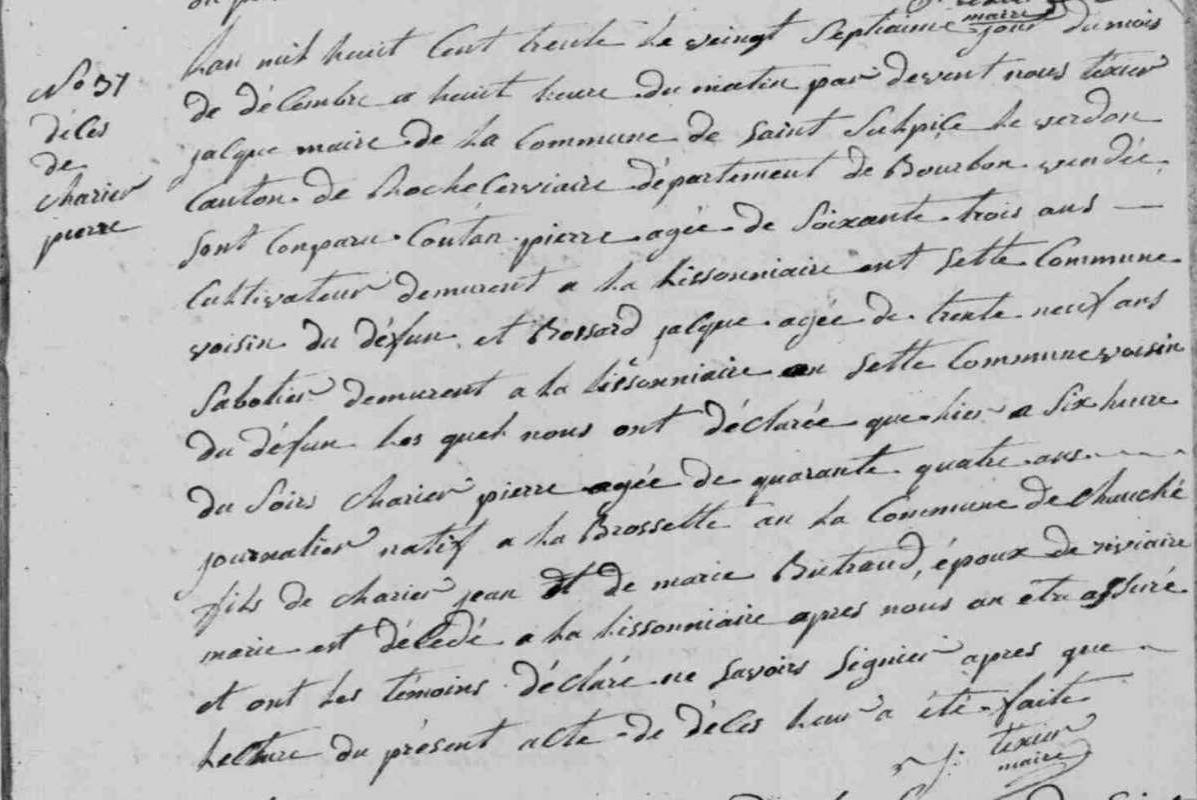 maire
No 37
décès
de
charier
pierre
Lan mil huit Cent trente Le veingt Septiaime jour du mois
de décembre a huit heure du matin par devent nous téxier
jacque maire de La Commune de Saint Sulpice Le verdon
Canton de Rocheserviaire département de Bourbon vendée
Sont Conparu Coutan pierre agée de Soixante trois ans
Cultivateur demurent a La Lissonniaire ent Sette Commune
voisin du défun et Brossard jacque agée de trente neuf ans
Sabotier demurent a La Lissonniaire an Sette Commune voisin
du défun Les quel nous ont déclarée que hier a Six heure
du Soirs charier pierre agée de quarante quatre ans
journalier natif a La Brossette an La Commune de Chauché
fils de charier jean et de marie Butraud, époux de riviaire
marie est décedé a La Lissonniaire apres nous an etre assuré
et ont Les témoins déclaré ne Savoirs Signier apres que
Lecture du présent acte de décès Leur a été faite
j. téxier
maire